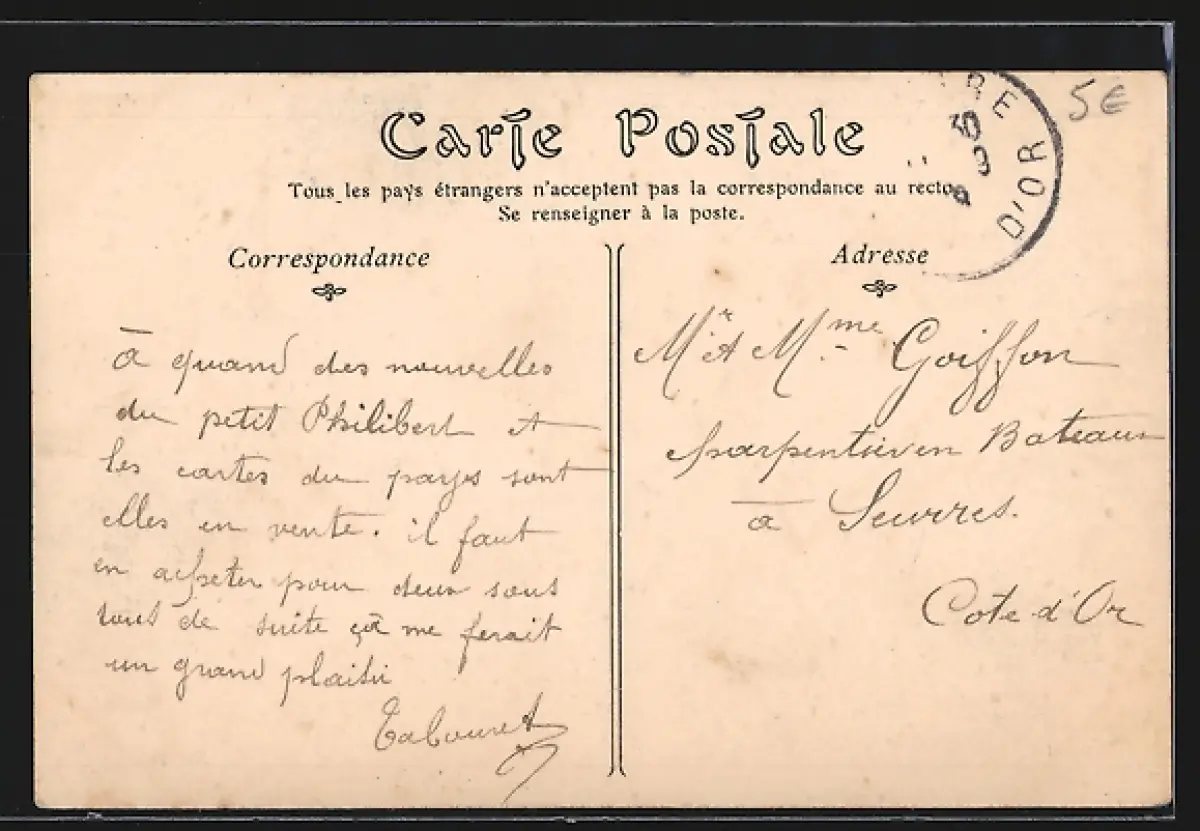 Carte Postale
Tous les pays étrangers n'acceptent pas la correspondance au recto
Se renseigner à la poste.
RE
D'OR
5€
Correspondance
à quand des nouvelles
du petit Philibert et
les cartes du pays sont
elles en vente. il faut
en acheter pour deux sous
tous de suite ça me ferait
un grand plaisir
Tabouret
Adresse
Mr et Mme Goiffon
charpentier en Bateaux
à Seurres.
Cote d'Or